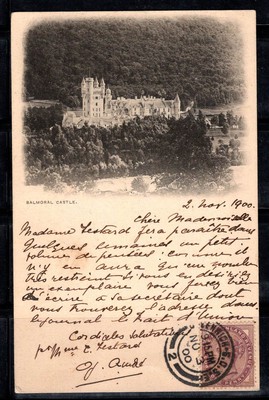 BALMORAL CASTLE.
2. Nov. 1900.
Chère Mademoiselle
Madame Testard fera paraître dans
quelques semaines un petit
volume de pensées. Comme il
n'y en aura qu'un nombre
très restreint si vous en désirez
un exemplaire vous ferez bien
d'écrire à sa secrétaire dont
vous trouverez l'adresse dans
le journal le Trait d'Union
Cordiales salutations
pr Mme E. Testard
NO 3
00
2